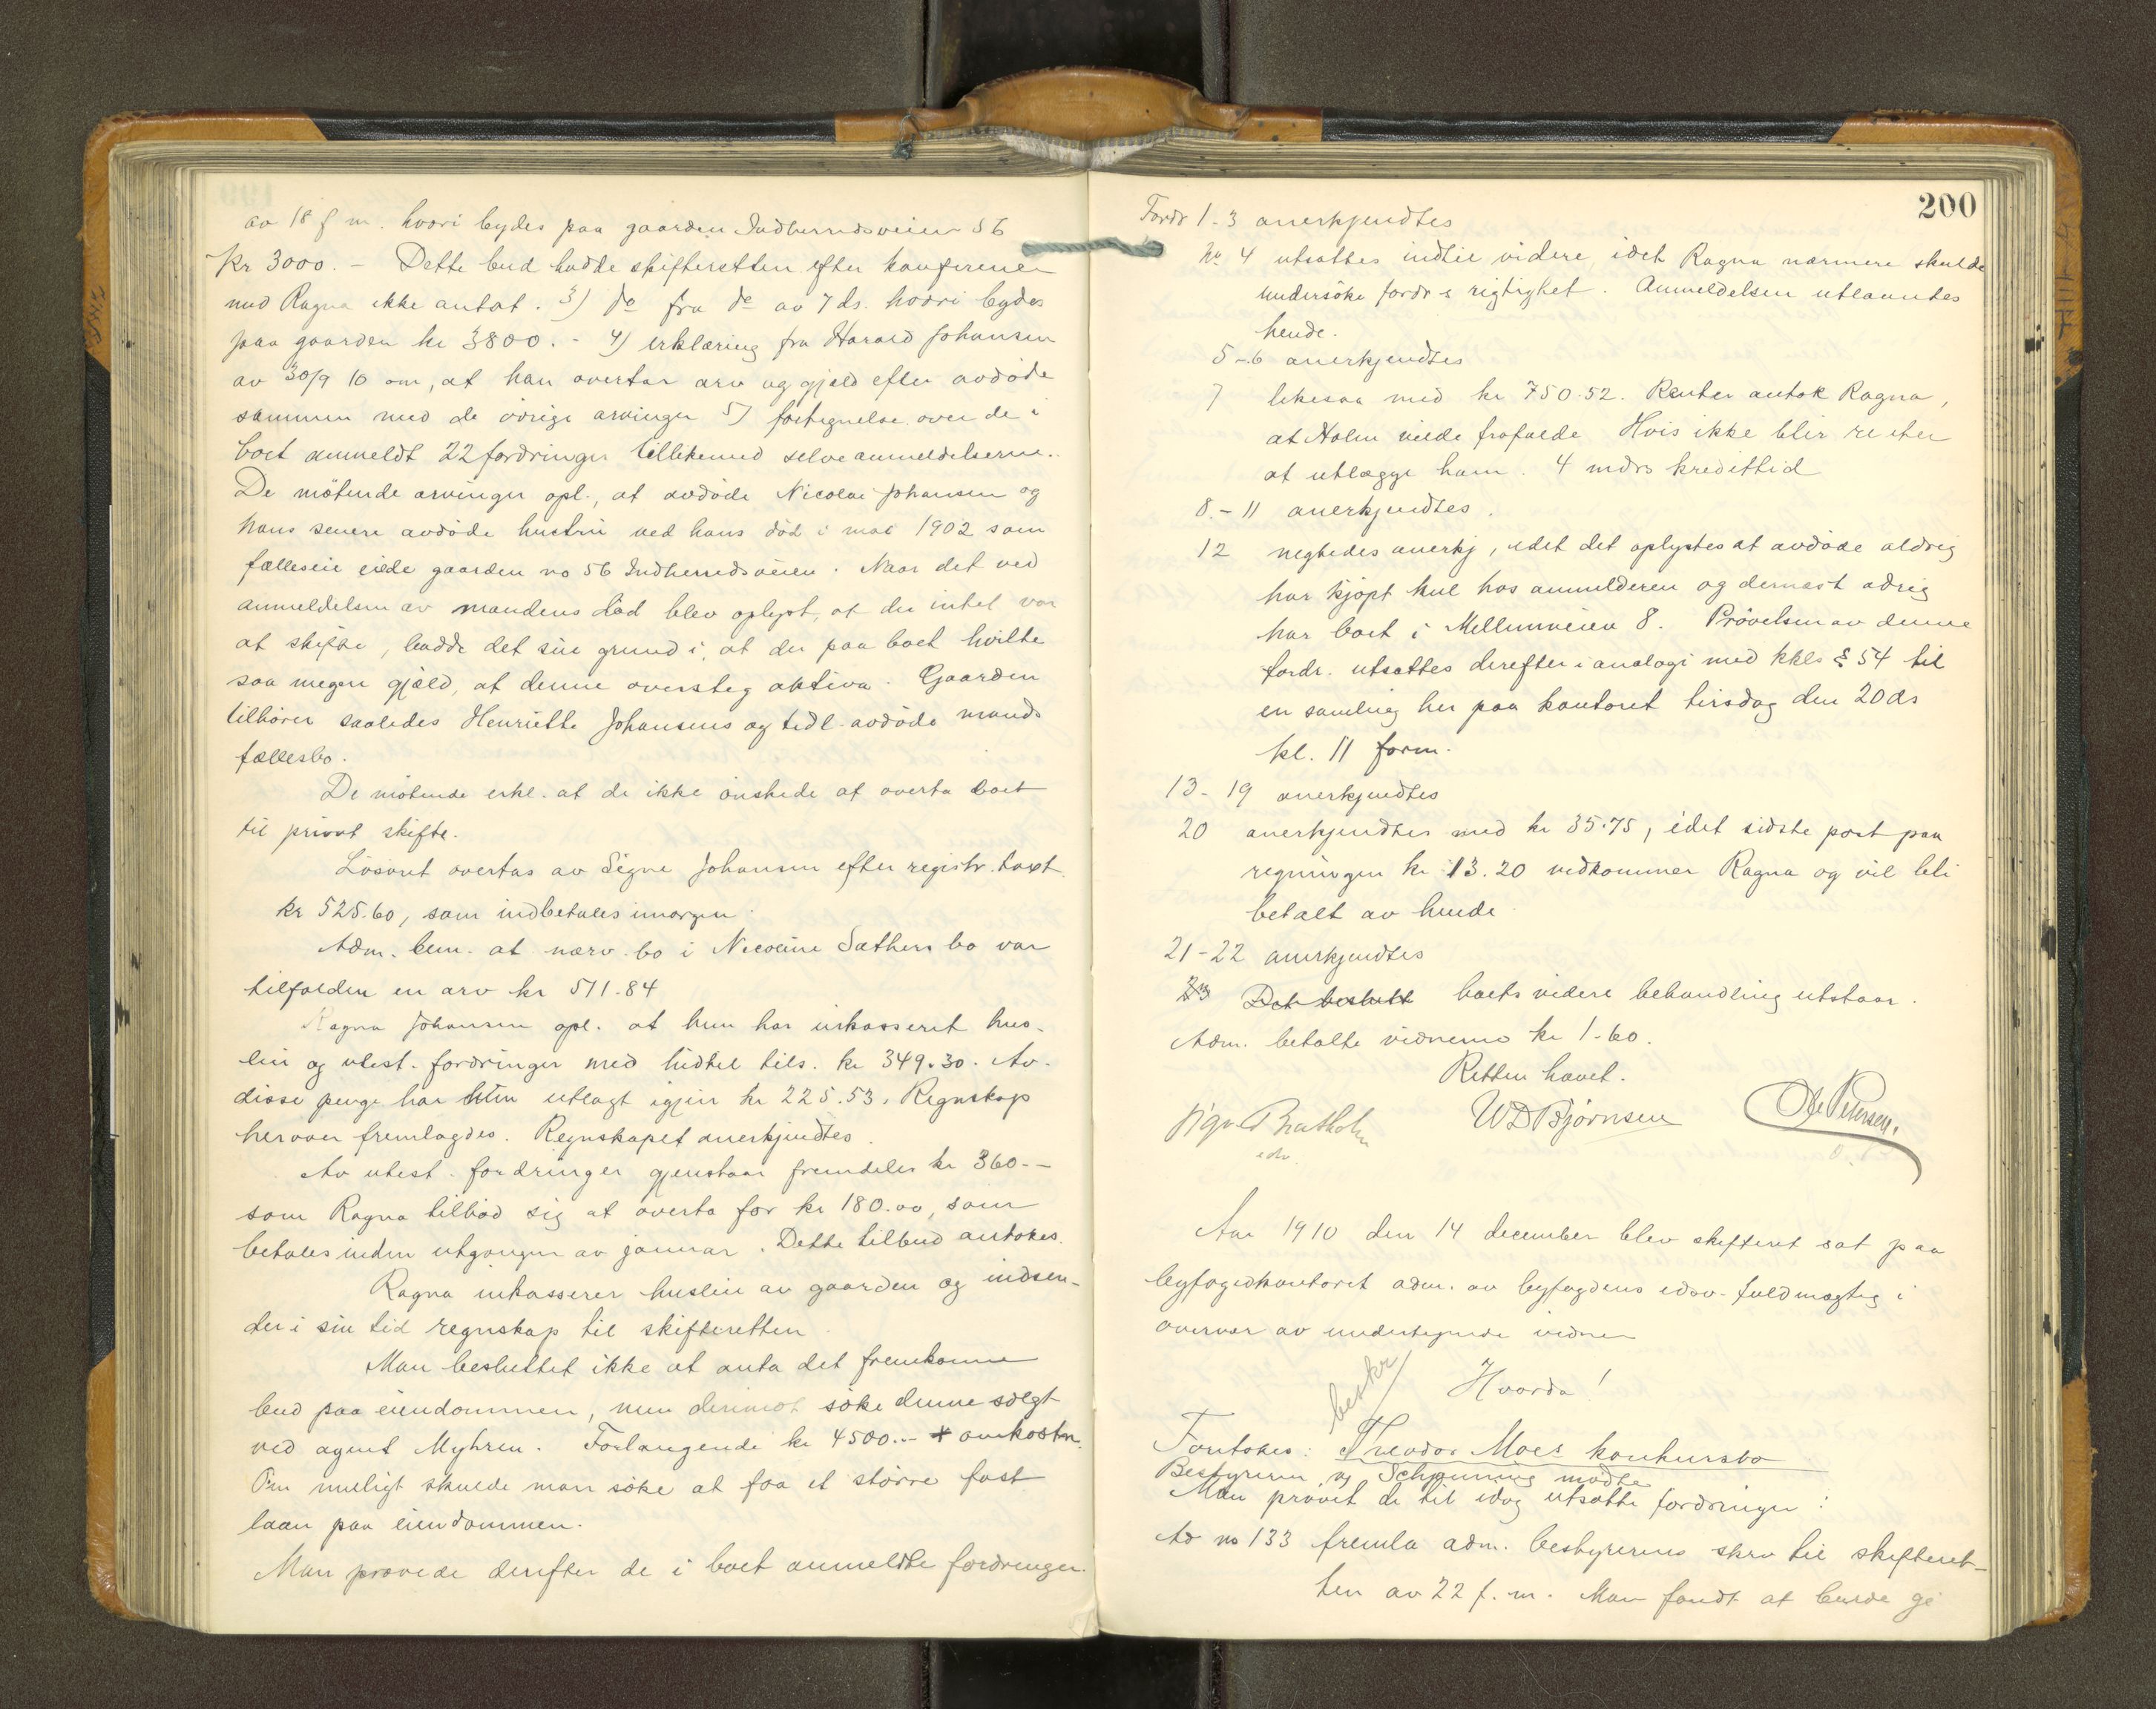 av 18 f m. hvori bydes paa gaarden Indherredsveien 56
Kr 3000. - Dette bud hadde skifteretten efter konferense
med Ragna ikke antat. 3) do fra do av 7 ds. hvori bydes
paa gaarden kr 3800. - 4) erklæring fra Harald Johansen
av 30/9 10 om, at han overtar arv og gjæld efter avdøde
sammen med de øvrige arvinger 5) fortegnelse over de i
boet anmeldt 22 fordringer tillikemed selve anmeldelserne.
De møtende arvinger opl., at avdøde Nicolai Johansen og
hans senere avdøde hustru ved hans død i mai 1902 som
fælleseie eiede gaarden no 56 Indherredsveien. Naar det ved
anmeldelsen av mandens död blev oplyst, at der intet var
at skifte, hadde det sin grund i, at der paa boet hvilte
saa megen gjæld, at denne oversteg aktiva. Gaarden
tilhører saaledes Henriette Johansens og tidl. avdøde mands
fællesbo.
De møtende erkl. at de ikke ønskede at overta boet
til privat skifte.
Løsøret overtas av Signe Johansen efter registr. taxt
kr 525.60, som indbetales imorgen.
Adm. bem. at nærv. bo i Nicoline Sæthers bo var
tilfalden en arv kr 511.84
Ragna Johansen opl. at hun har inkasseret hus-
leie og utest. fordringer med hidtil tils. kr 349.30. Av
disse penge har hun utlagt igjen kr 225.53. Regnskap
herover fremlagdes. Regnskapet anerkjendtes.
Av utest. fordringer gjenstaar fremdeles kr 360.-
som Ragna tilbød sig at overta for kr 180.00, som
betales inden utgangen av januar. Dette tilbud antokes.
Ragna inkasserer husleie av gaarden og indsen-
der i sin tid regnskap til skifteretten.
Man besluttet ikke at anta det fremkomne
bud paa eiendommen, men derimot søke denne solgt
ved agent Myhren. Forlangende kr 4500.- + omkostn.
Om muligt skulde man søke at faa et større fast
laan paa eiendommen.
Man prøvede derefter de i boet anmeldte fordringer.
200
Fordr 1-3 anerkjendtes
No 4 utsattes indtil videre idet Ragna nærmere skulde
undersøke fordr s rigtighet. Anmeldelsen utlaantes
hende.
5-6 anerkjendtes
7 likesaa med kr 750.52. Renter antok Ragna,
at Holm vilde frafalde Hvis ikke blir
at utlægge ham. 4 mdrs kredittid
8.-11 anerkjendtes.
12 negtedes anerkj, idet det oplystes at avdøde aldrig
har kjøpt kul hos anmelderen og dernæst aldrig
har boet i Mellemveien 8. Prøvelsen av denne
fordr. utsattes derefter i analogi med kkl § 54 til
en samling her paa kontoret tirsdag den 20 ds
kl. 11 form.
13-19 anerkjendtes
20 anerkjendtes med kr 35.75, idet sidste post paa
regningen kr 13.20 vedkommer Ragna og vil bli
betalt av hende.
21-22 anerkjendtes
23 Det beslutt boets videre behandling utstaar.
Adm. betalte vidnerne kr 1.60.
Retten hævet.
Sigv Bratholm W D Bjørnsen Ole Petersen.
edv.
Aar 1910 den 14 december blev skifteret sat paa
byfogedkontoret adm. av byfogdens edsv. fuldmægtig i
overvær av undertegnede vidner
beskr
Hvorda!
Foretokes: Theodor Moes konkursbo
Bestyreren og Schjønning mødte
Man prøvet de til idag utsatte fordringer:
Ad no 133 fremla adm. bestyrerens skrv til skifteret-
ten av 22 f. m. Man fandt at burde gi